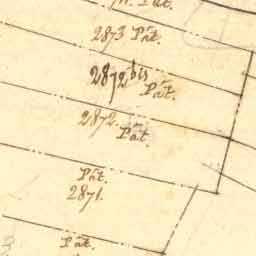 Pât.
2873 Pât.
2872 bis
Pât.
2872.
Pât.
Pât.
2871.
Pât.